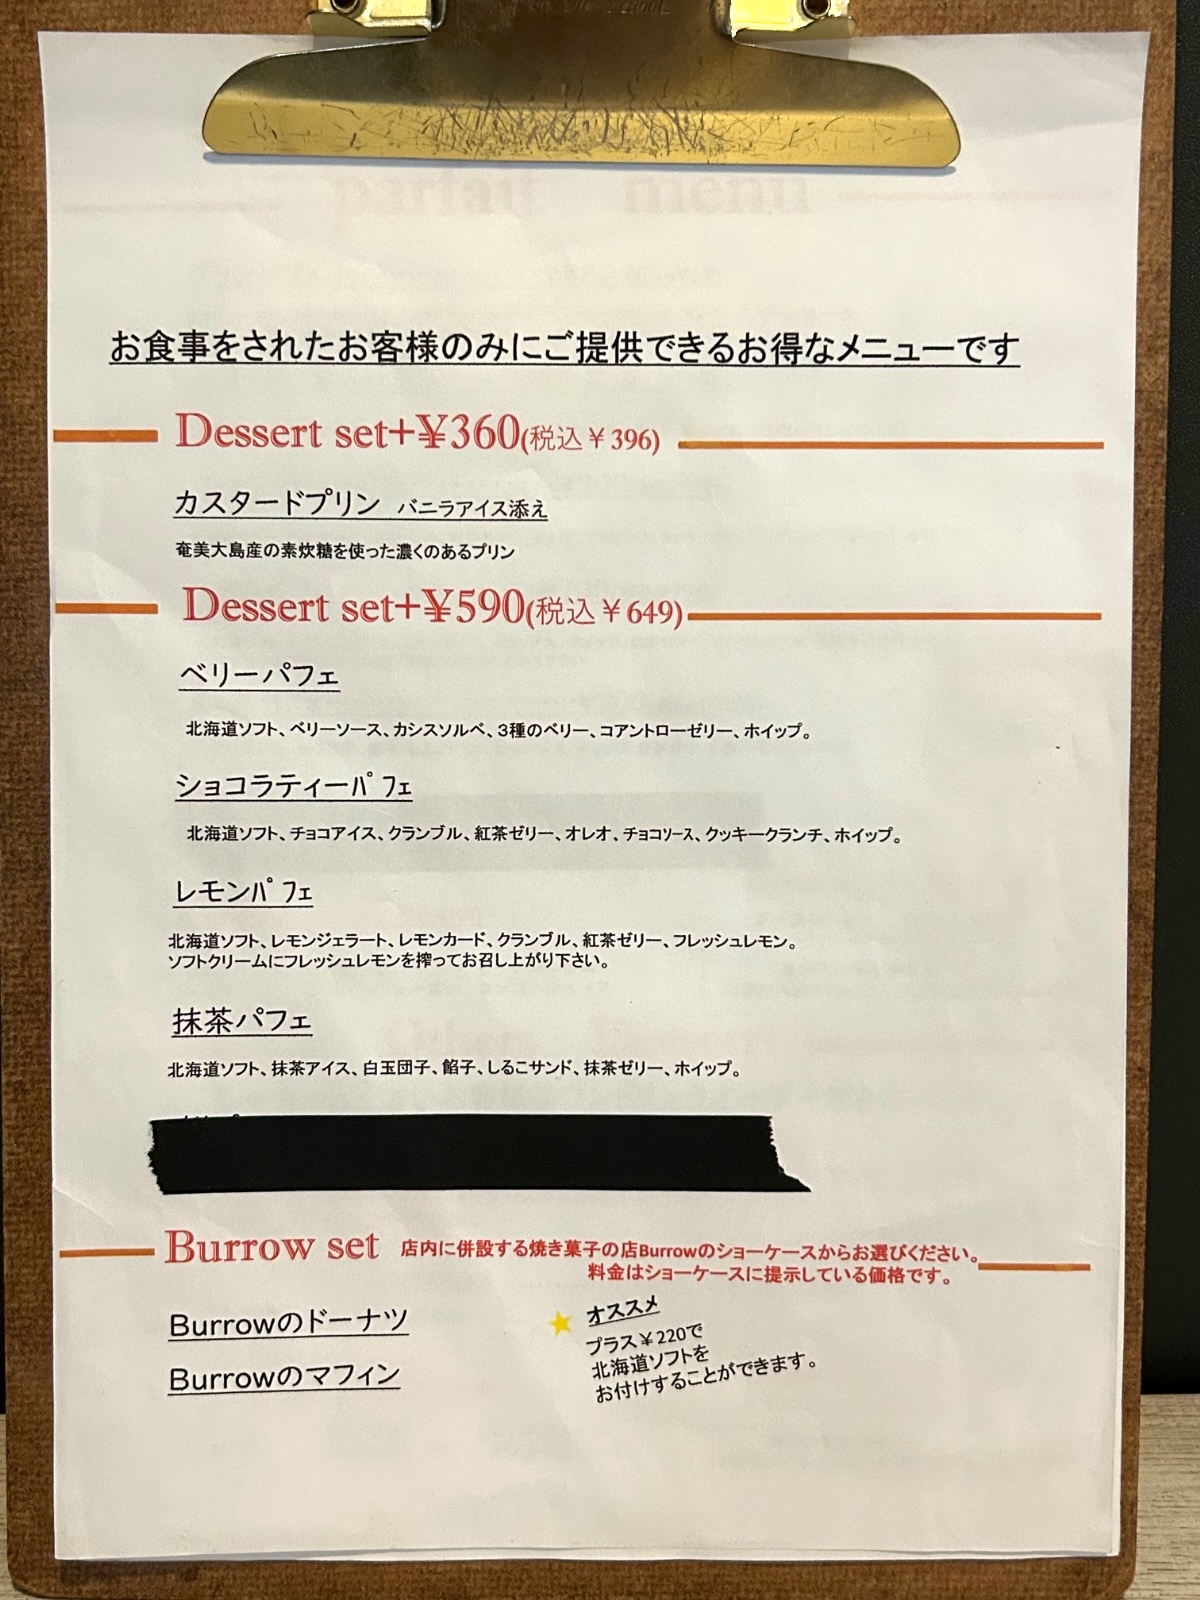 お食事をされたお客様のみにご提供できるお得なメニューです
Dessert set+¥360(税込￥396)
カスタードプリン バニラアイス添え
奄美大島産の素炊糖を使った濃くのあるプリン
Dessert set+¥590(税込￥649)
ベリーパフェ
北海道ソフト、ベリーソース、カシスソルベ、3種のベリー、コアントローゼリー、ホイップ。
ショコラティーﾊﾟﾌｪ
北海道ソフト、チョコアイス、クランブル、紅茶ゼリー、オレオ、チョコソース、クッキークランチ、ホイップ。
レモンﾊﾟﾌｪ
北海道ソフト、レモンジェラート、レモンカード、クランブル、紅茶ゼリー、フレッシュレモン。
ソフトクリームにフレッシュレモンを搾ってお召し上がり下さい。
抹茶パフェ
北海道ソフト、抹茶アイス、白玉団子、餡子、しるこサンド、抹茶ゼリー、ホイップ。
Burrow set 店内に併設する焼き菓子の店Burrowのショーケースからお選びください。
料金はショーケースに提示している価格です。
Burrowのドーナツ
Burrowのマフィン
オススメ
プラス￥220で
北海道ソフトを
お付けすることができます。